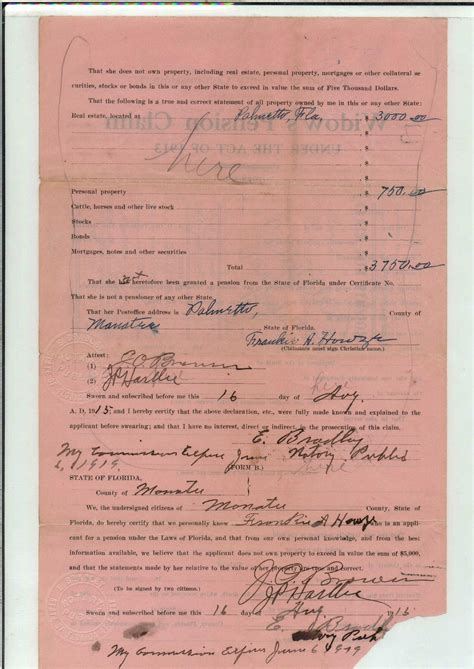 That she does not own property, including real estate, personal property, mortgages or other collateral se
curities, stocks or bonds in this or any other State to exceed in value the sum of Five Thousand Dollars.
That the following is a true and correct statement of all property owned by me in this or any other State:
Real estate, located at Palmetto, Fla, $ 3000.00
Widow's Pension Claim
UNDER THE ACT OF 1913
here
Personal property $ 750.00
Cattle, horses and other live stock $
Stocks $
Bonds $
Mortgages, notes and other securities $
Total $ 3750.00
That she not heretofore been granted a pension from the State of Florida under Certificate No.
That she is not a pensioner of any other State.
That her Postoffice address is Palmetto, County of
Manatee State of Florida.
Frankie A. Howze
(Claimant must sign Christian name.)
Attest:
(1)
(2) J P Harllee
Sworn and subscribed before me this 16 day of Aug
A. D. 1915; and I hereby certify that the above declaration, etc., were fully made known and explained to the
applicant before swearing; and that I have no interest, direct or indirect, in the prosecution of this claim.
E. Bradley
My Commission Expires June Notary Public
6, 1919.
(FORM B.)
STATE OF FLORIDA,
County of Manatee
We, the undersigned citizens of Manatee County, State of
Florida, do hereby certify that we personally know Frankie A Howze who is an appli-
cant for a pension under the Laws of Florida, and that from our own personal knowledge, and from the best
information available, we believe that the applicant does not own property to exceed in value the sum of $5,000,
and that the statements made by her relative to the value of her property are true and correct.
J P Harllee
(To be signed by two citizens.)
Sworn and subscribed before me this 16 day of Aug 1915
E. Bradl
Notary Pub
My commission Expires June 6 1919